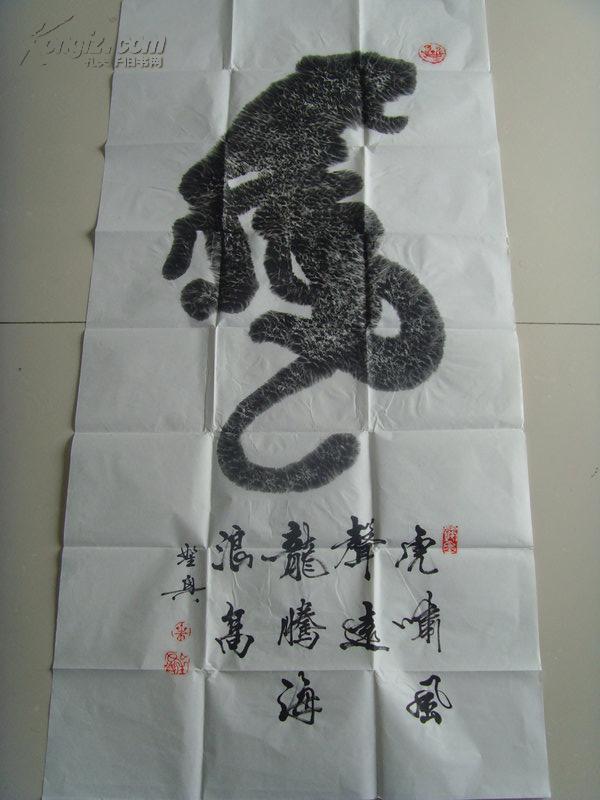 Kongfz.com
孔夫子旧书网
虎嘯風
聲遠
龍騰海
浪高